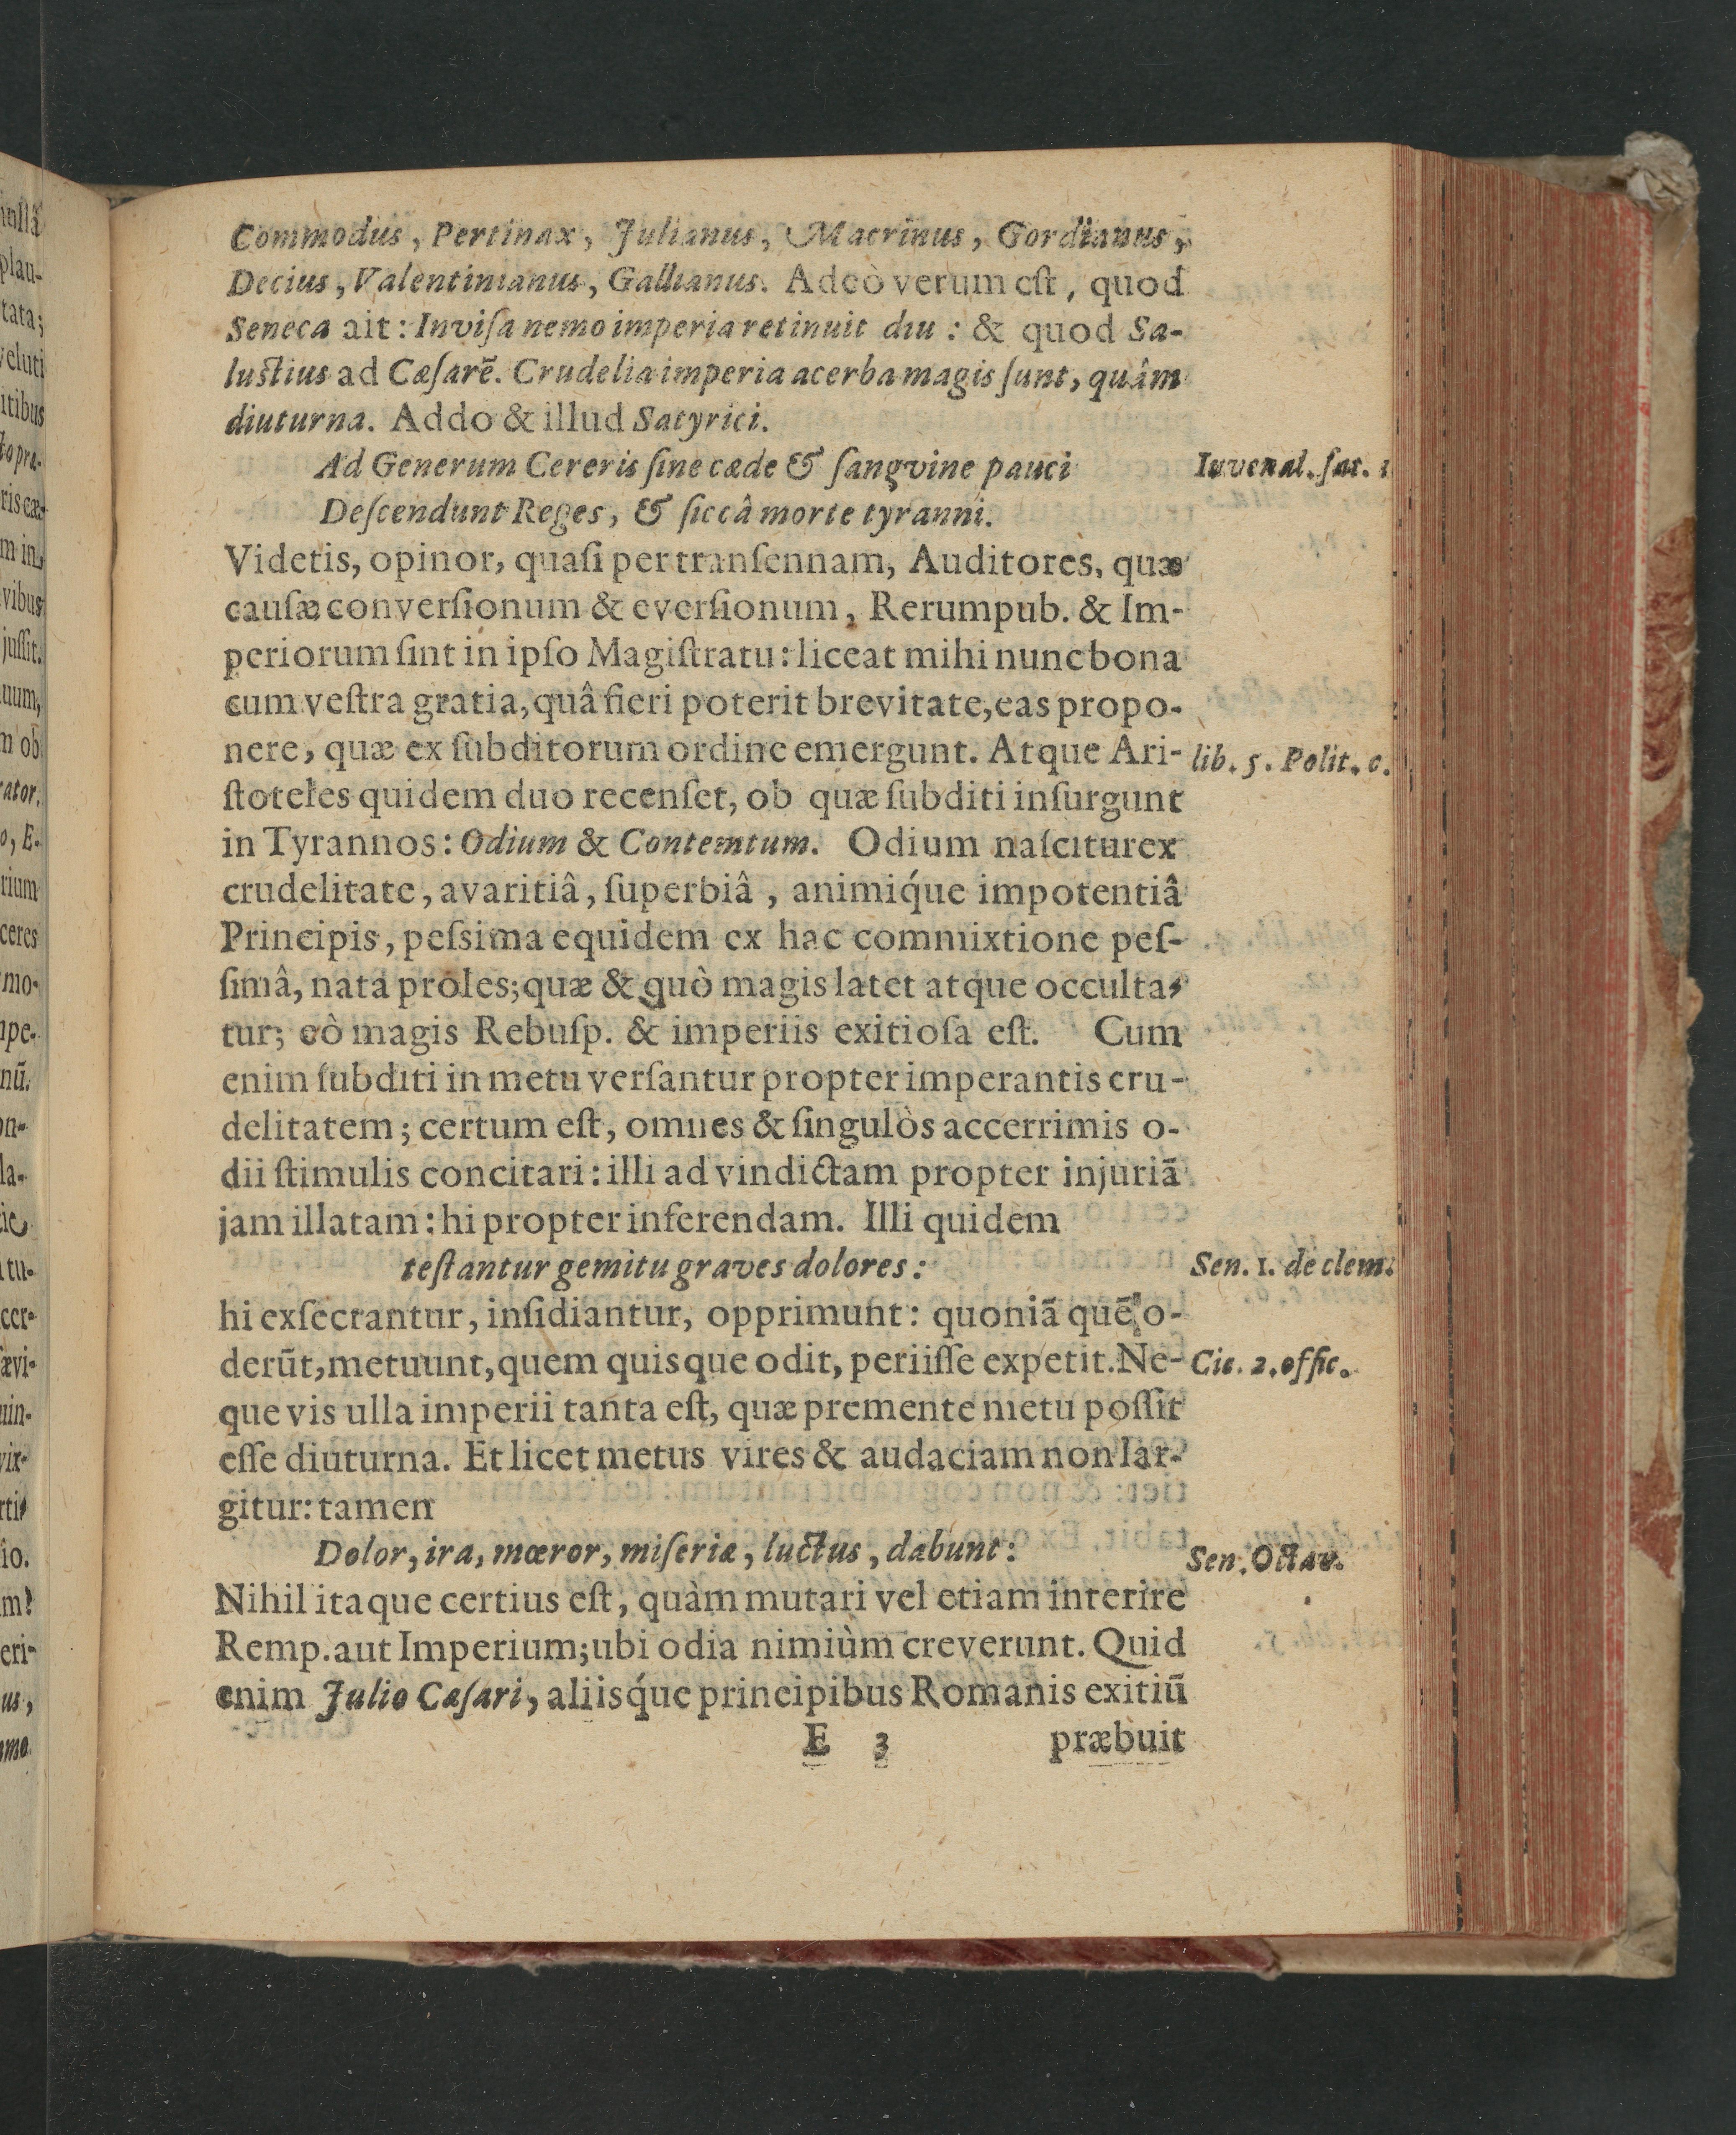 Commodus, Pertinax, Julianus, Macrinus, Gordianus,
Decius, Valentinianus, Gallianus. Adeò verum eſt, quod
Seneca ait: Inviſa nemo imperia retinuit diu: & quod Sa-
luſtius ad Cæſarē. Crudelia imperia acerba magis ſunt, quâm
diuturna. Addo & illud Satyrici.
Ad Generum Cereris ſine cæde & ſangvine pauci
Iuvenal. ſat. 1
Deſcendunt Reges, & ſiccâ morte tyranni.
Videtis, opinor, quaſi per tranſennam, Auditores, quæ
cauſæ converſionum & everſionum, Rerumpub. & Im-
periorum ſint in ipſo Magiſtratu: liceat mihi nunc bona
cum veſtra gratia, quâ fieri poterit brevitate, eas propo-
nere, quæ ex ſubditorum ordine emergunt. Atque Ari-
lib. 5. Polit. c.
ſtoteles quidem duo recenſet, ob quæ ſubditi inſurgunt
in Tyrannos: Odium & Contemtum. Odium naſcitur ex
crudelitate, avaritiâ, ſuperbiâ, animiq́ue impotentiâ
Principis, peſsima equidem ex hac commixtione peſ-
ſimâ, nata proles; quæ & quò magis latet atque occulta-
tur; eò magis Rebuſp. & imperiis exitioſa eſt. Cum
enim ſubditi in metu verſantur propter imperantis cru-
delitatem; certum eſt, omnes & ſingulòs accerrimis o-
dii ſtimulis concitari: illi ad vindictam propter injuriā
jam illatam: hi propter inferendam. Illi quidem
teſtantur gemitu graves dolores:
Sen. 1. de clem.
hi exſecrantur, inſidiantur, opprimunt: quoniā quē o-
derūt, metuunt, quem quisque odit, periiſſe expetit. Ne-
Cic. 2. offic.
que vis ulla imperii tanta eſt, quæ premente metu poſſit
eſſe diuturna. Et licet metus vires & audaciam non lar-
gitur: tamen
Dolor, ira, mœror, miſeriæ, luctus, dabunt:
Sen. Octav.
Nihil itaque certius eſt, quàm mutari vel etiam interire
Remp. aut Imperium; ubi odia nimiùm creverunt. Quid
enim Julio Cæſari, aliisq́ue principibus Romanis exitiū
E 3
præbuit